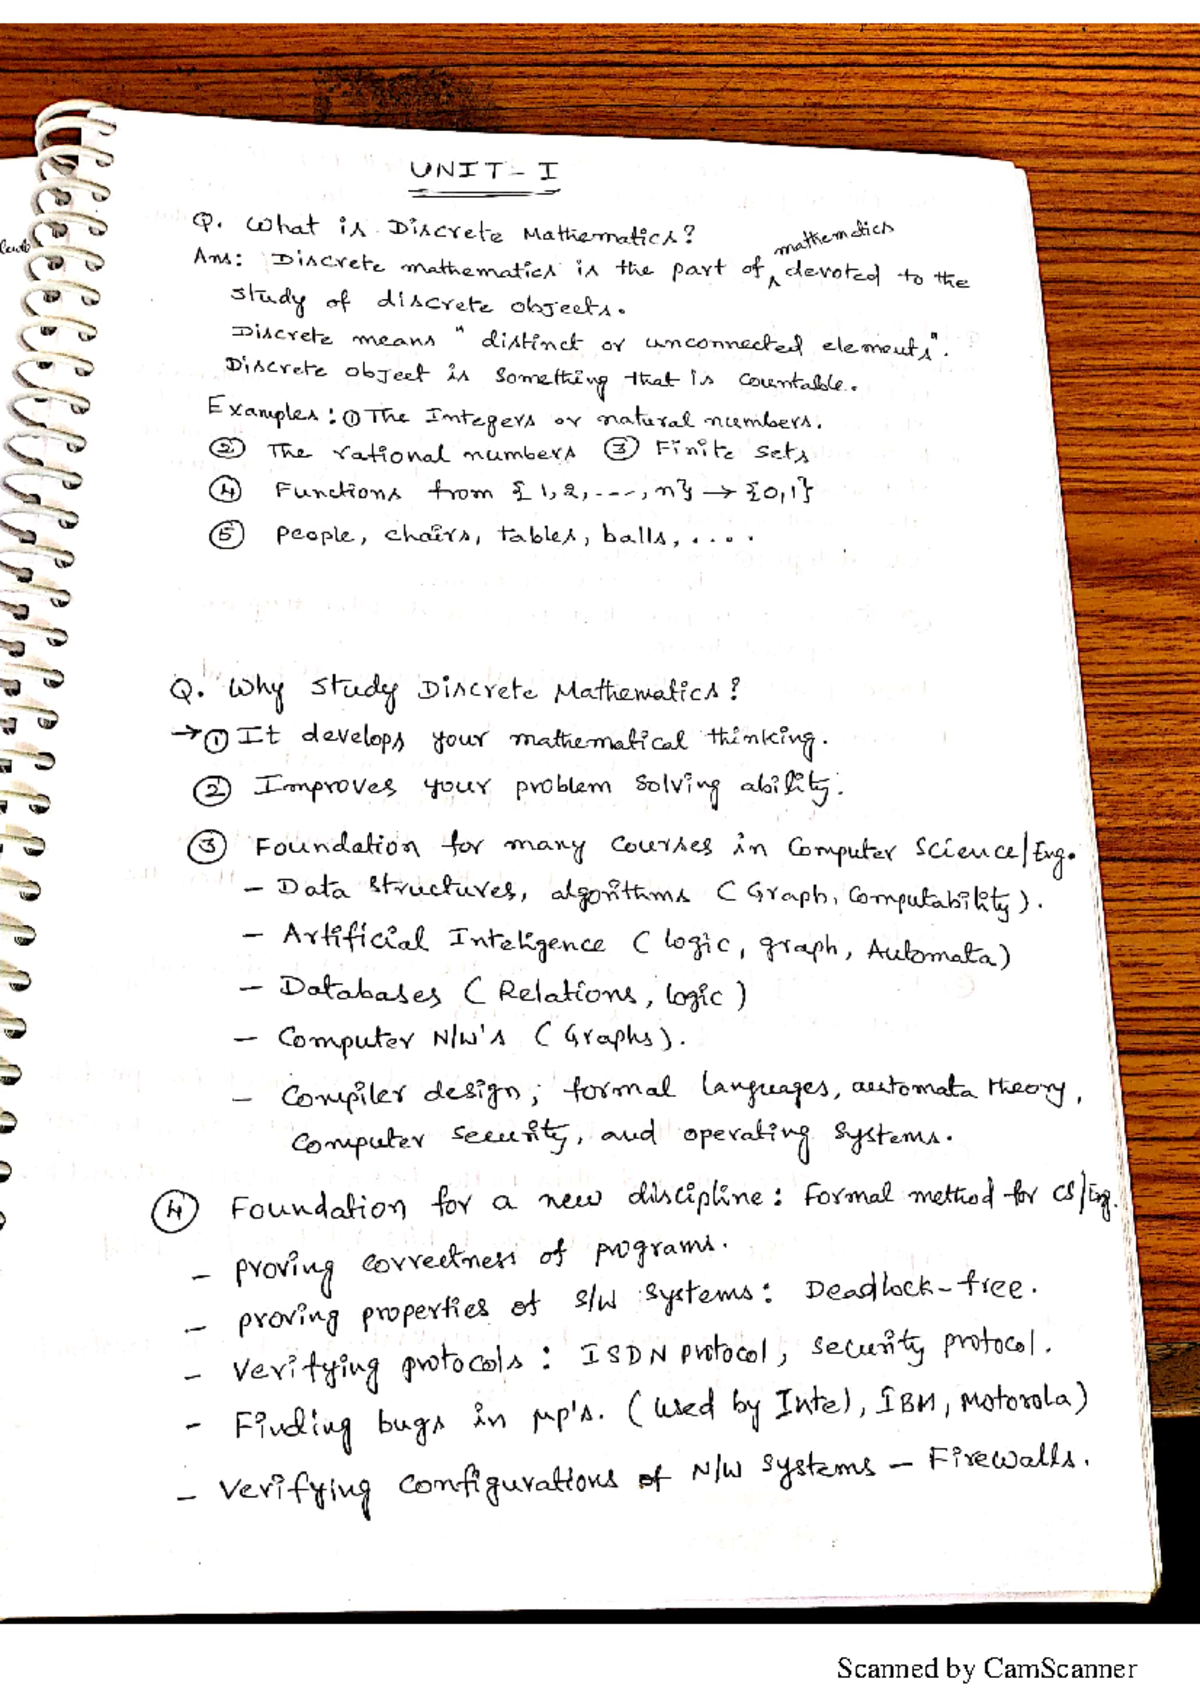 UNIT-I
Q. What is Discrete Mathematics?
mathematics
Ans: Discrete mathematics is the part of ‸ devoted to the
study of discrete objects.
Discrete means "distinct or unconnected elements".
Discrete object is something that is countable.
Examples: ① The Integers or natural numbers.
② The rational numbers ③ Finite sets
④ Functions from {1,2,---,n} → {0,1}
⑤ People, chairs, tables, balls, ....
Q. Why Study Discrete Mathematics?
→ ① It develops your mathematical thinking.
② Improves your problem solving ability.
③ Foundation for many courses in Computer Science/Eng.
- Data structures, algorithms (Graph, Computability).
- Artificial Inteligence (logic, graph, Automata)
- Databases (Relations, logic)
- Computer N/W's (Graphs).
- Compiler design; formal languages, automata theory,
Computer security, and operating systems.
④ Foundation for a new discipline: Formal method for CS/Eng.
- proving correctness of programs.
- proving properties of S/W systems: Deadlock-free.
- Verifying protocols: ISDN protocol, security protocol.
- Finding bugs in μp's. (Used by Intel, IBM, Motorola)
- Verifying configurations of N/W systems - Firewalls.
Scanned by CamScanner